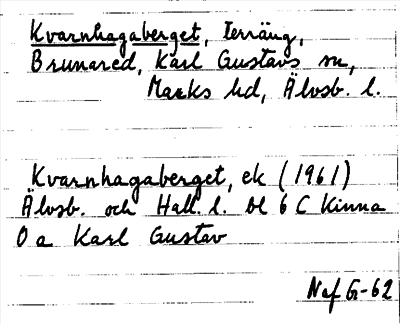 Kvarnhagaberget, terräng,
Brunared, Karl Gustavs sn,
Marks hd, Älvsb. l.
Kvarnhagaberget, ek (1961)
Älvsb. och Hall. l. bl 6 C Kinna
O a Karl Gustav
Naf G-62